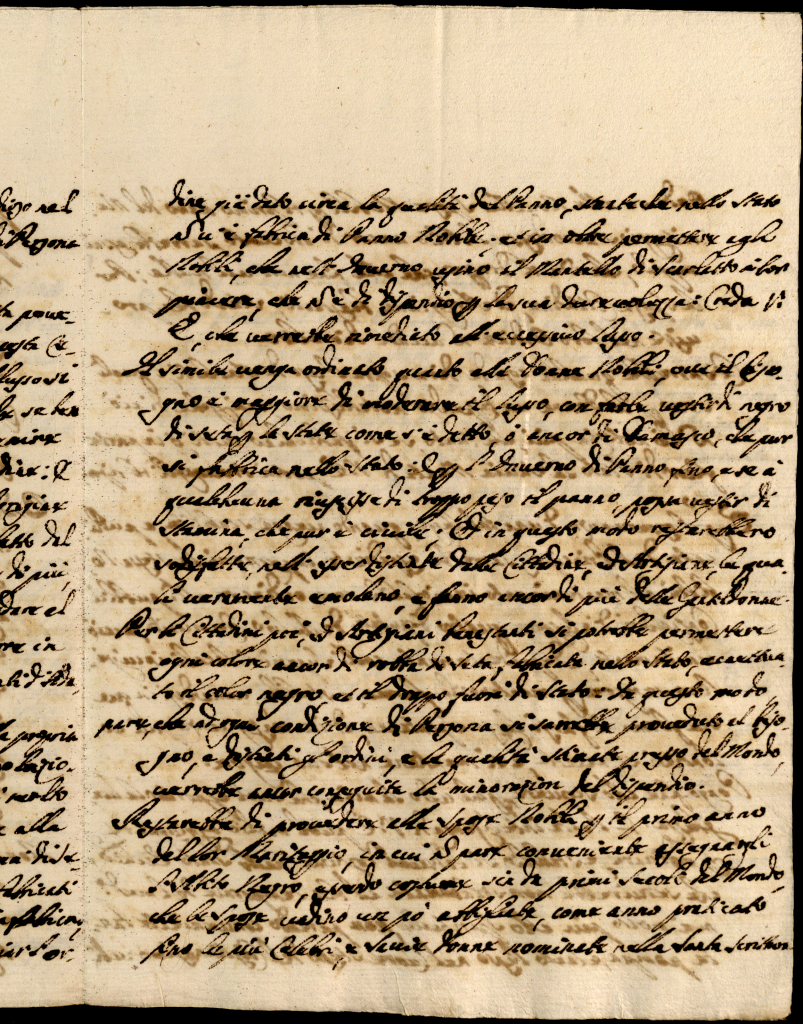 digo nel
di Persona
costa Ci-
lusso si
se ben
dine: E
di più,
dare el
re in
la propria
molto
e alla
dine già dato circa la qualità del Panno, stante che nello Stato
vi è fabrica di Panno Nobile; et in oltre permettere agli
Nobili, che nell'Inverno usino il Mantello di Scarlatto à lor
piacere, che è di dispendio, la sua durevolezza: Creda
che verrebbe rimediato all'eccessivo lusso.
Il simile venga ordinato quanto alle Donne Nobili, ove il biso-
gno è maggiore di moderare il lusso, con farle vestir di negro
di seta la state come s'è detto, ò ancor di Damasco, che pur
si fabrica nello Stato: E l'Inverno di Panno fino, e se à
qualcheuna riuscisse di troppo peso il panno, possa vestir di
Stamina, che pur è civile; Et in questo modo restarebbero
sodisfatte, nell'esser distinte dalle Cittadine, ed Artegiane, le qua-
li veramente emolano, e fanno ancor di più delle Gentildonne.
Per le Cittadini poi, ed Artegiani benestanti si potrebbe permettere
ogni colore ancor di robba di seta, fabricata nello Stato, eccettua-
to il color negro, et il drappo fuori di Stato: In questo modo
pare, che ad ogni condizione di Persona si sarrebbe proveduto el biso-
gno, e distinti gl'ordini, e la qualità stimata presso del Mondo,
verrebbe ancor conseguita la minorazion del dispendio.
Restarebbe di provedere alle Spose Nobili il primo anno
del lor Maritaggio, in cui pare conveniente assegnargli
l'Abito Negro, essendo costume sin da primi secoli del Mondo,
che le Spose vadino un pò abbigliate, come anno praticato
fino le più Celebri, e Savie donne nominate nella Santa Scrittura